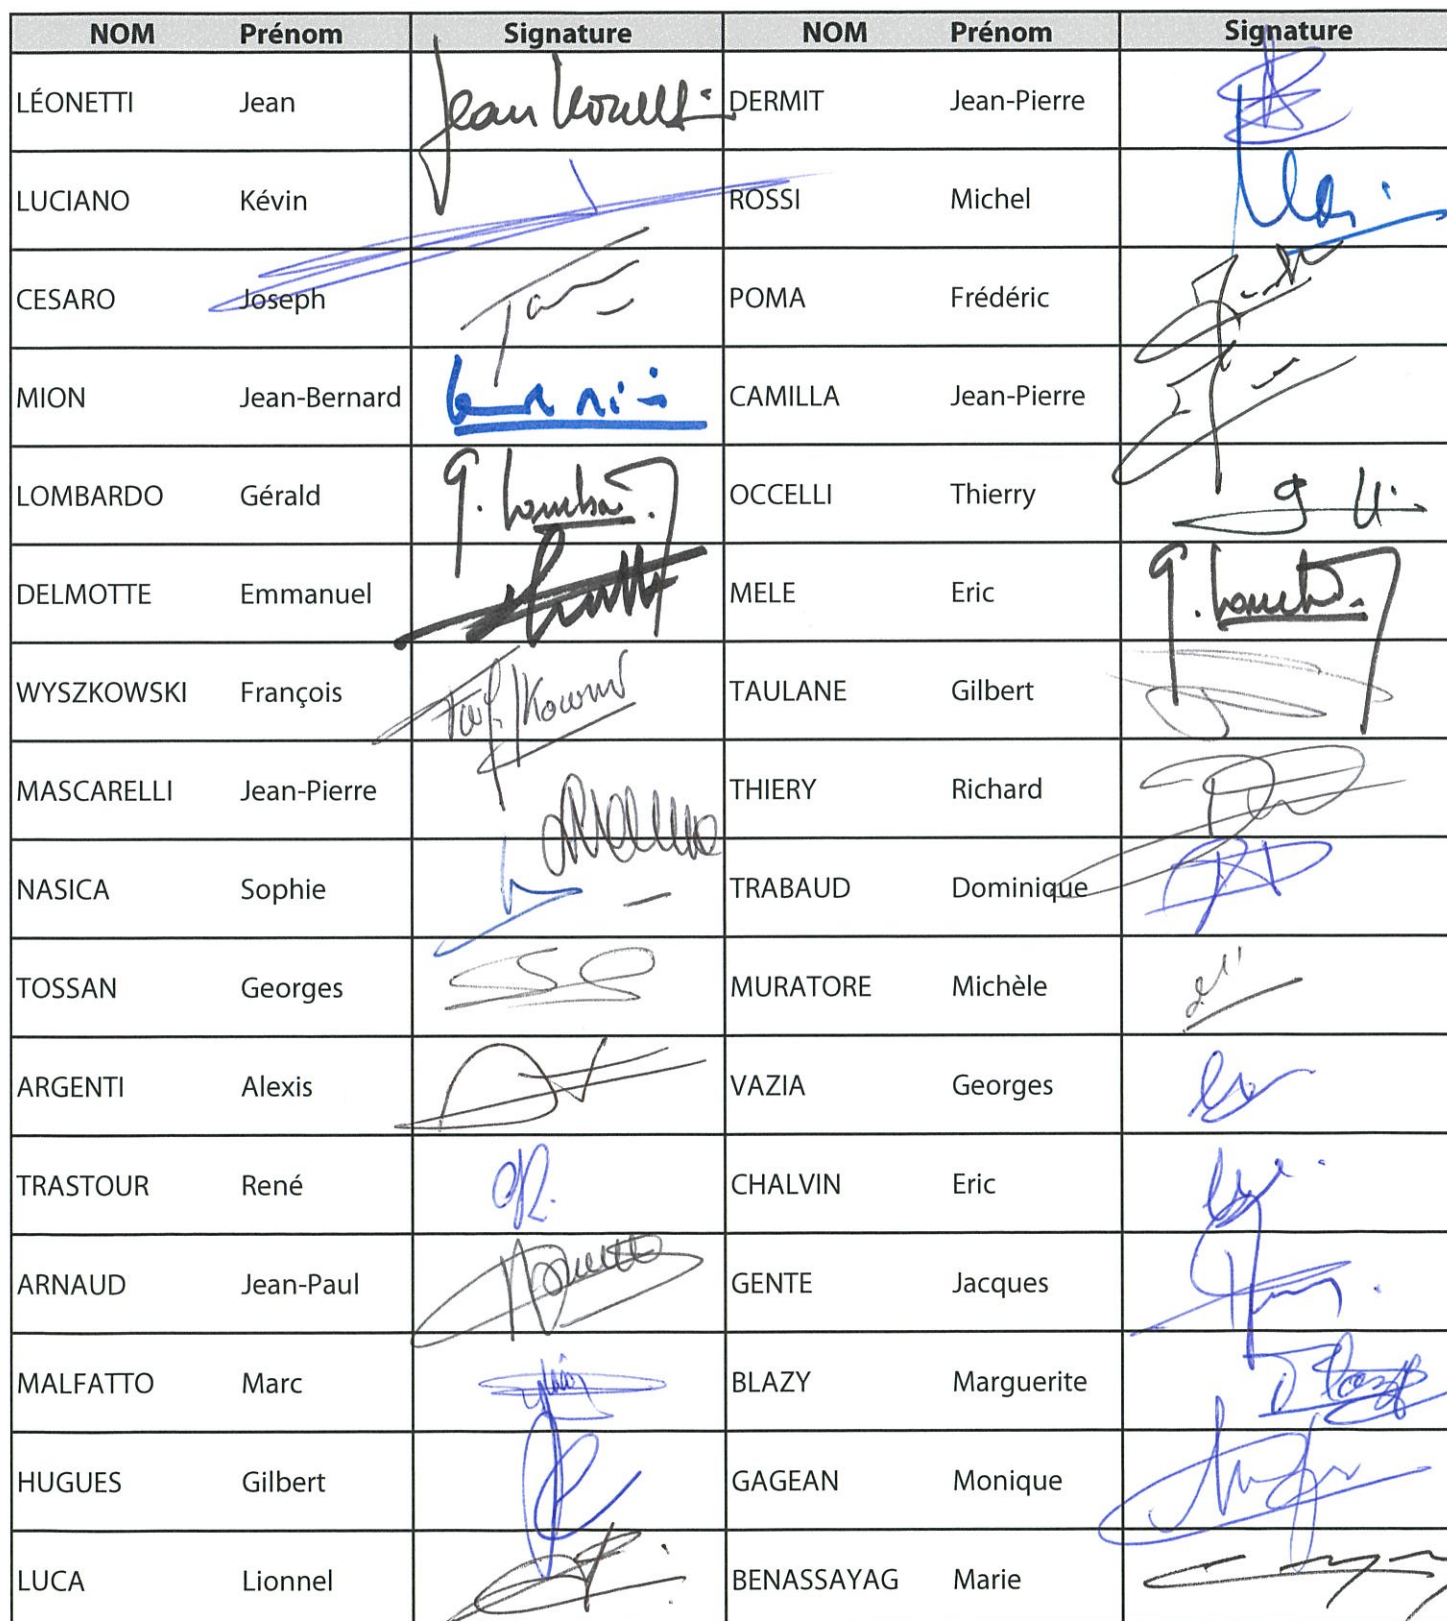 NOM Prénom Signature NOM Prénom Signature
LÉONETTI Jean Jean Leonetti DERMIT Jean-Pierre
LUCIANO Kévin ROSSI Michel
CESARO Joseph POMA Frédéric
MION Jean-Bernard CAMILLA Jean-Pierre
LOMBARDO Gérald G. Lombardo OCCELLI Thierry
DELMOTTE Emmanuel MELE Eric G. Lombardo
WYSZKOWSKI François TAULANE Gilbert
MASCARELLI Jean-Pierre THIERY Richard
NASICA Sophie TRABAUD Dominique
TOSSAN Georges MURATORE Michèle
ARGENTI Alexis VAZIA Georges
TRASTOUR René CHALVIN Eric
ARNAUD Jean-Paul GENTE Jacques
MALFATTO Marc BLAZY Marguerite
HUGUES Gilbert GAGEAN Monique
LUCA Lionnel BENASSAYAG Marie